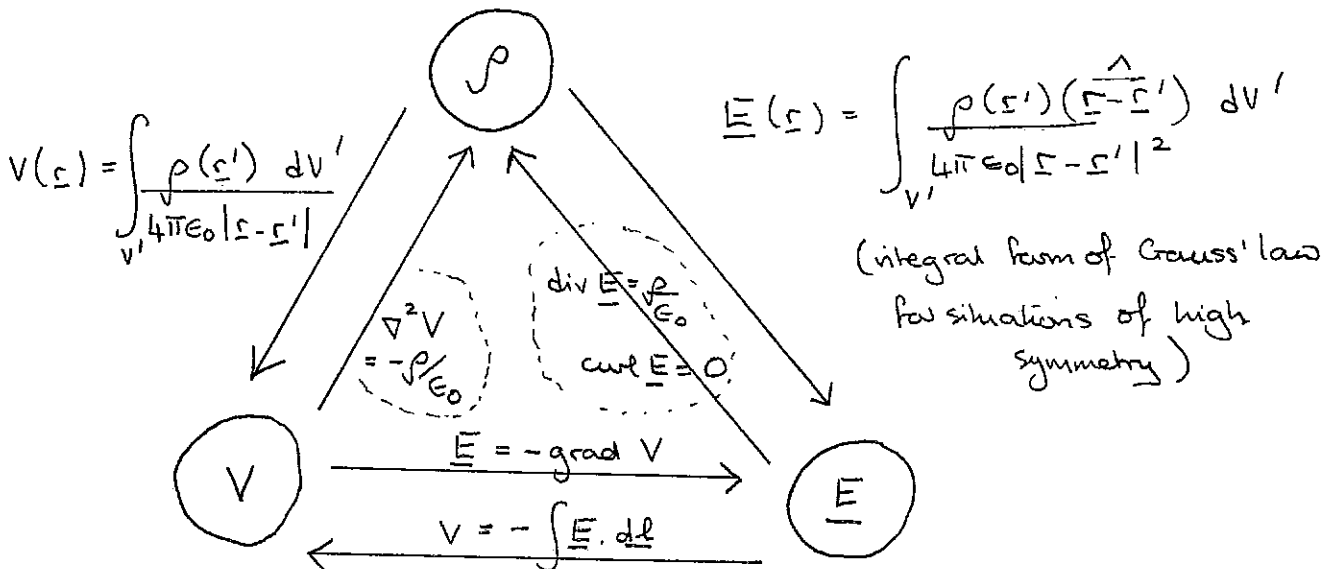 ρ
V(r) = ∫_V' ρ(r') dV' / 4πε₀|r - r'|
E(r) = ∫_V' ρ(r') (r - r')^ dV' / 4πε₀|r - r'|²
(integral form of Gauss' law
for situations of high
symmetry)
∇²V
= -ρ/ε₀
div E = ρ/ε₀
curl E = 0
E = -grad V
V
E
V = -∫ E . dl